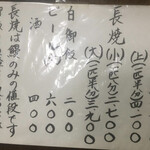 (上)(二匹半分)四一〇〇
長焼(小)(一匹半分)二、七〇〇
(大)(二匹半分)三、九〇〇
白御飯 二〇〇
ビール 六〇〇
酒 四〇〇
長焼は鰻のみの値段です